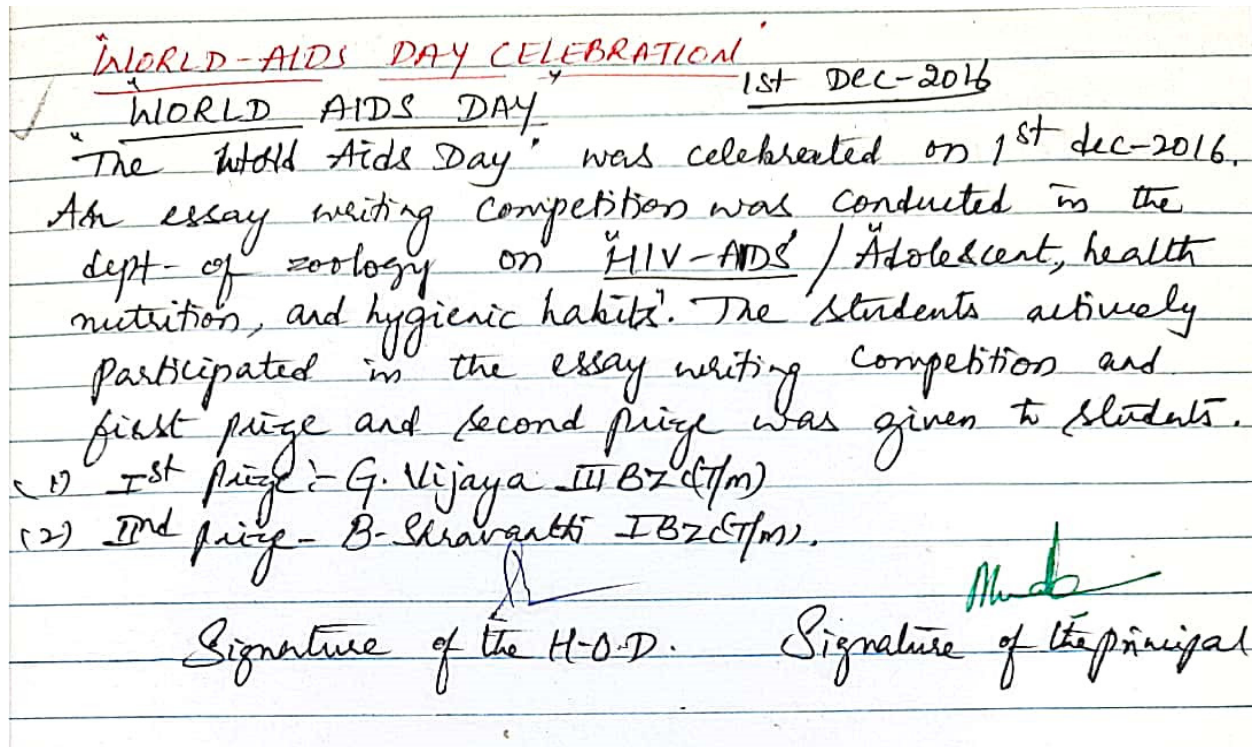 "WORLD-AIDS DAY CELEBRATION"
1st Dec-2016
"WORLD AIDS DAY"
"The World Aids Day" was celebreated on 1st dec-2016.
An essay writing Competition was conducted in the
dept- of zoology on "HIV-AIDS" / "Adolescent, health
nutrition, and hygienic habits". The students actively
participated in the essay writing competition and
first prize and second prize was given to students.
(1) Ist prize:- G. Vijaya III BZC(T/m)
(2) IInd prize- B-Shravanthi I BZC(T/m).
Signature of the H-O-D. Signature of the principal